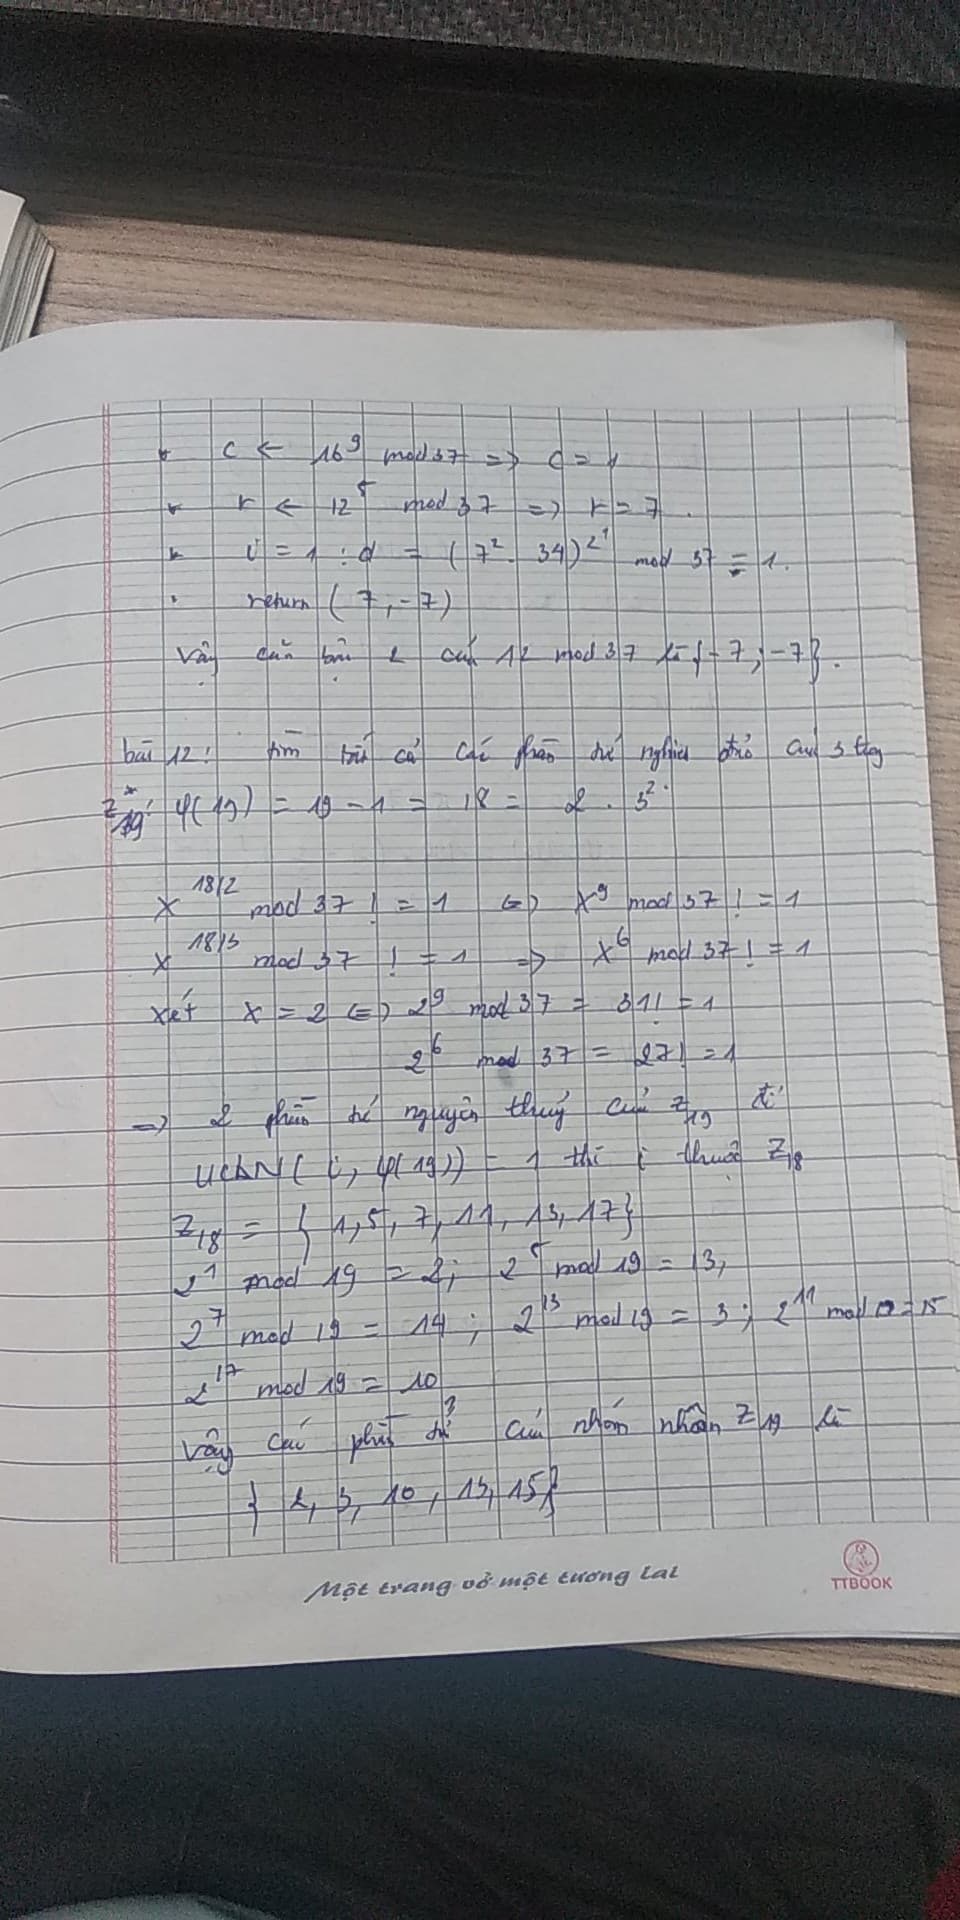 C ← 16^9 mod 37 => C = 1
r ← 12^5 mod 37 => r = 7.
i = 1 : d = (7^2. 34)^2^1 mod 37 = 1.
return (7, -7)
Vậy căn bậc 2 của 12 mod 37 là {7; -7}.
bài 12: tìm tất cả các phần tử nghịch đảo của 3 trong
Z*19: φ(19) = 19 - 1 = 18 = 2 . 3^2.
X^18/2 mod 37 != 1 <=> X^9 mod 37 != 1
X^18/3 mod 37 != 1 => X^6 mod 37 != 1
xét X = 2 <=> 2^9 mod 37 = 31 != 1
2^6 mod 37 = 27 != 1
=> 2 phần tử nguyên thuỷ của Z19 để
UCLN(i, φ(19)) = 1 thì i thuộc Z18
Z18 = {1, 5, 7, 11, 13, 17}
2^1 mod 19 = 2; 2^5 mod 19 = 13,
2^7 mod 19 = 14; 2^13 mod 19 = 3; 2^11 mod = 15
2^17 mod 19 = 10
Vậy các phần tử của nhóm nhân Z19 là
{2, 3, 10, 13, 15}
Một trang vở một tương lai
TTBOOK